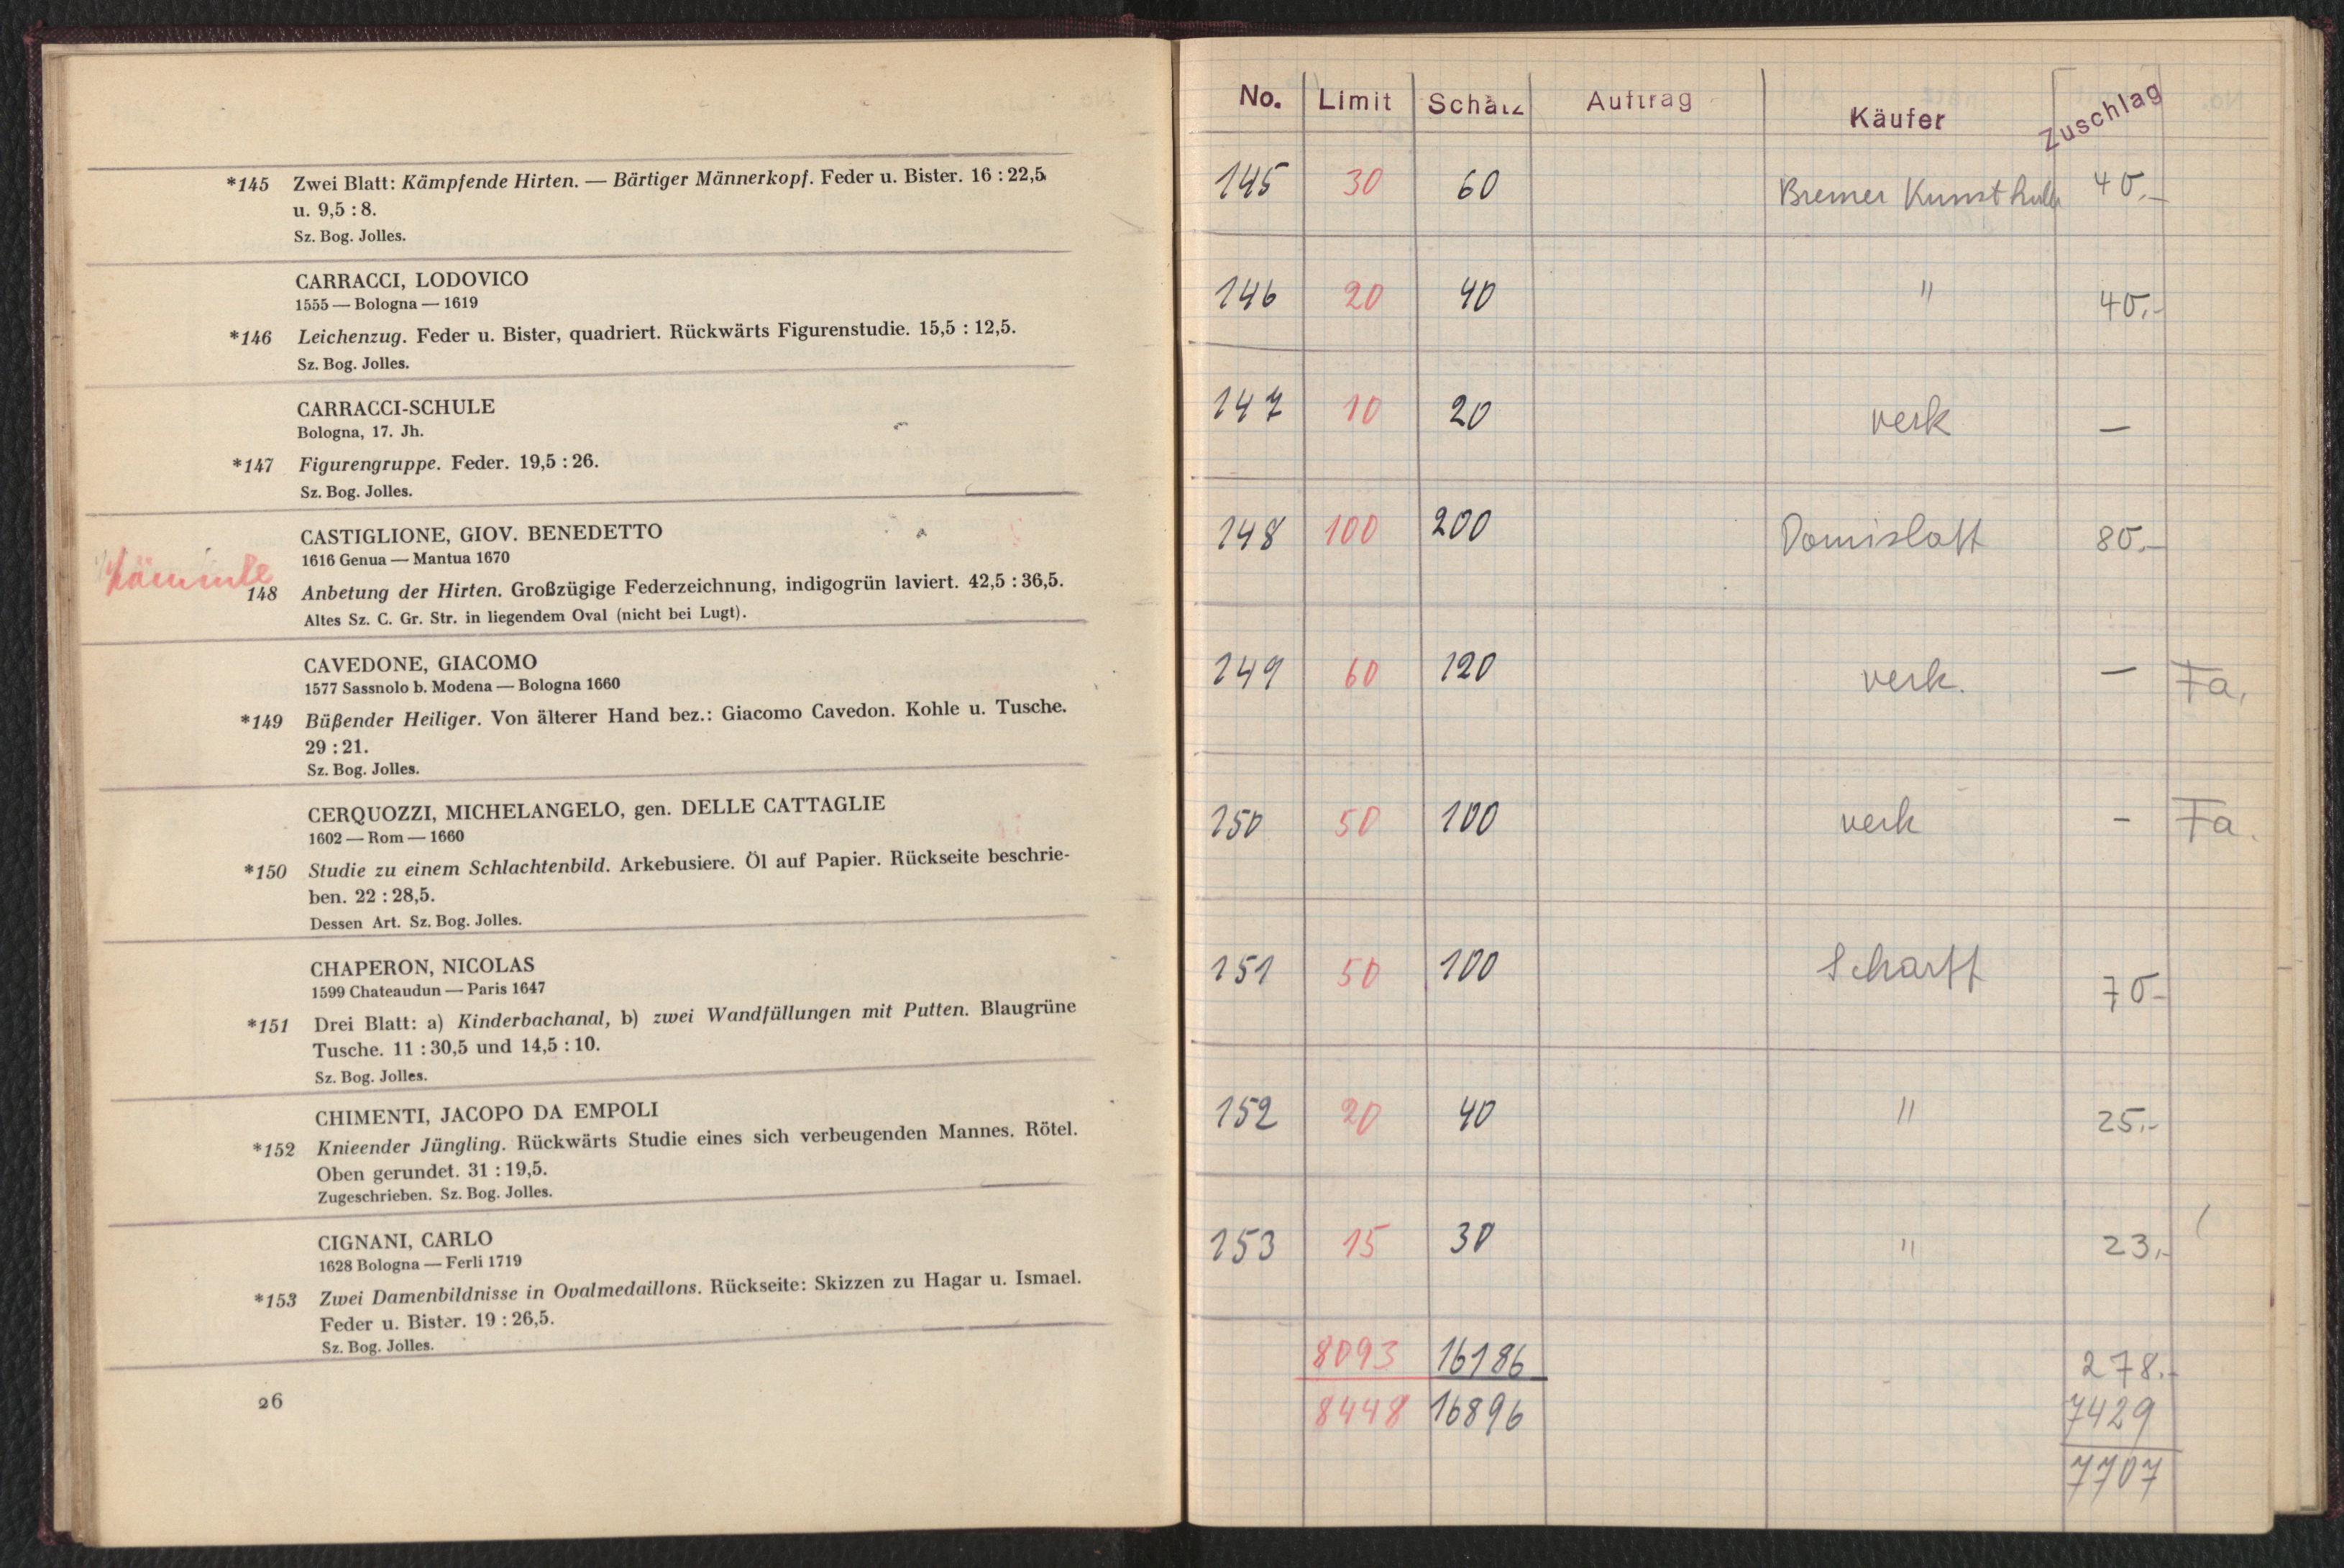 *145 Zwei Blatt: Kämpfende Hirten. — Bärtiger Männerkopf. Feder u. Bister. 16 : 22,5
u. 9,5 : 8.
Sz. Bog. Jolles.
CARRACCI, LODOVICO
1555 — Bologna — 1619
*146 Leichenzug. Feder u. Bister, quadriert. Rückwärts Figurenstudie. 15,5 : 12,5.
Sz. Bog. Jolles.
CARRACCI-SCHULE
Bologna, 17. Jh.
*147 Figurengruppe. Feder. 19,5 : 26.
Sz. Bog. Jolles.
CASTIGLIONE, GIOV. BENEDETTO
1616 Genua — Mantua 1670
148 Anbetung der Hirten. Großzügige Federzeichnung, indigogrün laviert. 42,5 : 36,5.
Altes Sz. C. Gr. Str. in liegendem Oval (nicht bei Lugt).
CAVEDONE, GIACOMO
1577 Sassnolo b. Modena — Bologna 1660
*149 Büßender Heiliger. Von älterer Hand bez.: Giacomo Cavedon. Kohle u. Tusche.
29 : 21.
Sz. Bog. Jolles.
CERQUOZZI, MICHELANGELO, gen. DELLE CATTAGLIE
1602 — Rom — 1660
*150 Studie zu einem Schlachtenbild. Arkebusiere. Öl auf Papier. Rückseite beschrie-
ben. 22 : 28,5.
Dessen Art. Sz. Bog. Jolles.
CHAPERON, NICOLAS
1599 Chateaudun — Paris 1647
*151 Drei Blatt: a) Kinderbachanal, b) zwei Wandfüllungen mit Putten. Blaugrüne
Tusche. 11 : 30,5 und 14,5 : 10.
Sz. Bog. Jolles.
CHIMENTI, JACOPO DA EMPOLI
*152 Knieender Jüngling. Rückwärts Studie eines sich verbeugenden Mannes. Rötel.
Oben gerundet. 31 : 19,5.
Zugeschrieben. Sz. Bog. Jolles.
CIGNANI, CARLO
1628 Bologna — Ferli 1719
*153 Zwei Damenbildnisse in Ovalmedaillons. Rückseite: Skizzen zu Hagar u. Ismael.
Feder u. Bister. 19 : 26,5.
Sz. Bog. Jolles.
26
No. Limit Schätz Auftrag Käufer Zuschlag
145 30 60 Bremer Kunsthalle 40.-
146 20 40 " 40.-
147 10 20 verk —
148 100 200 80.-
149 60 120 verk. — Fa.
150 50 100 verk - Fa.
151 50 100 Scharff 70-
152 20 40 " 25.-
153 15 30 " 23.-
8093 16186 278.-
8448 16896 7429
7707